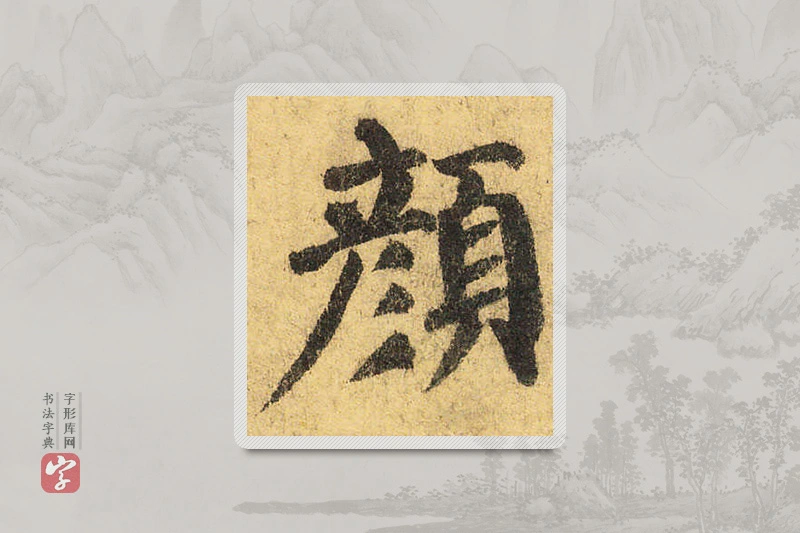 顔
字形库网
书法字典
字